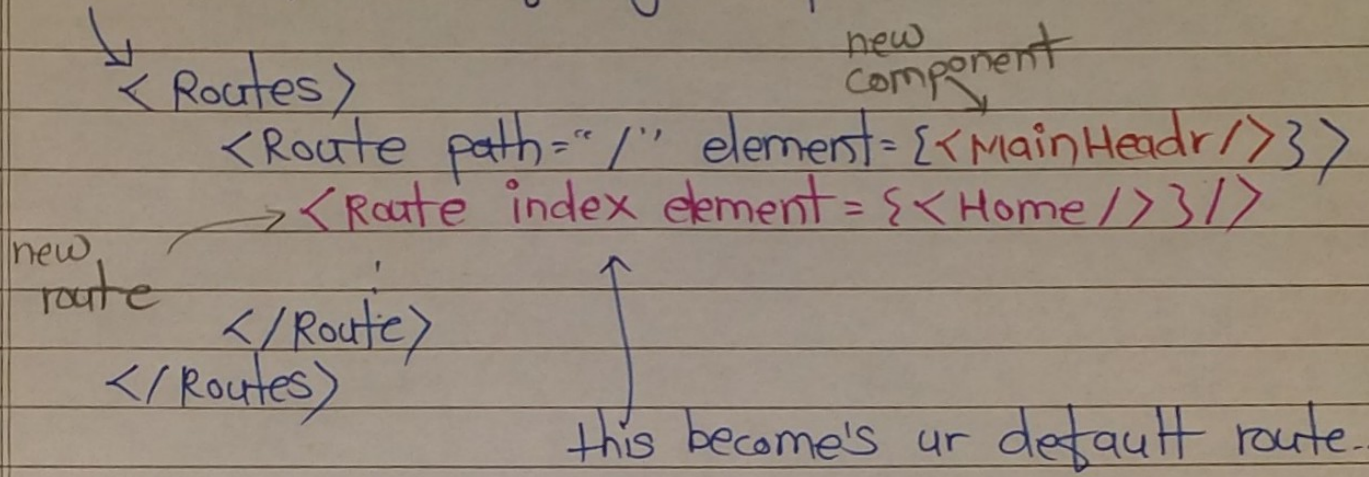 new
component
<Routes>
<Route path="/" element={<MainHeadr/>}>
<Route index element={<Home/>}/>
new
route
</Route>
</Routes>
this become's ur default route.